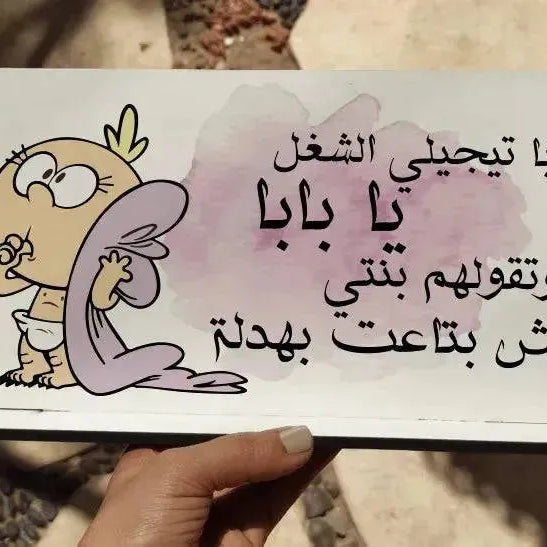 تيجيلي الشغل
يا بابا
وتقولهم بنتي
بتاعت بهدلة